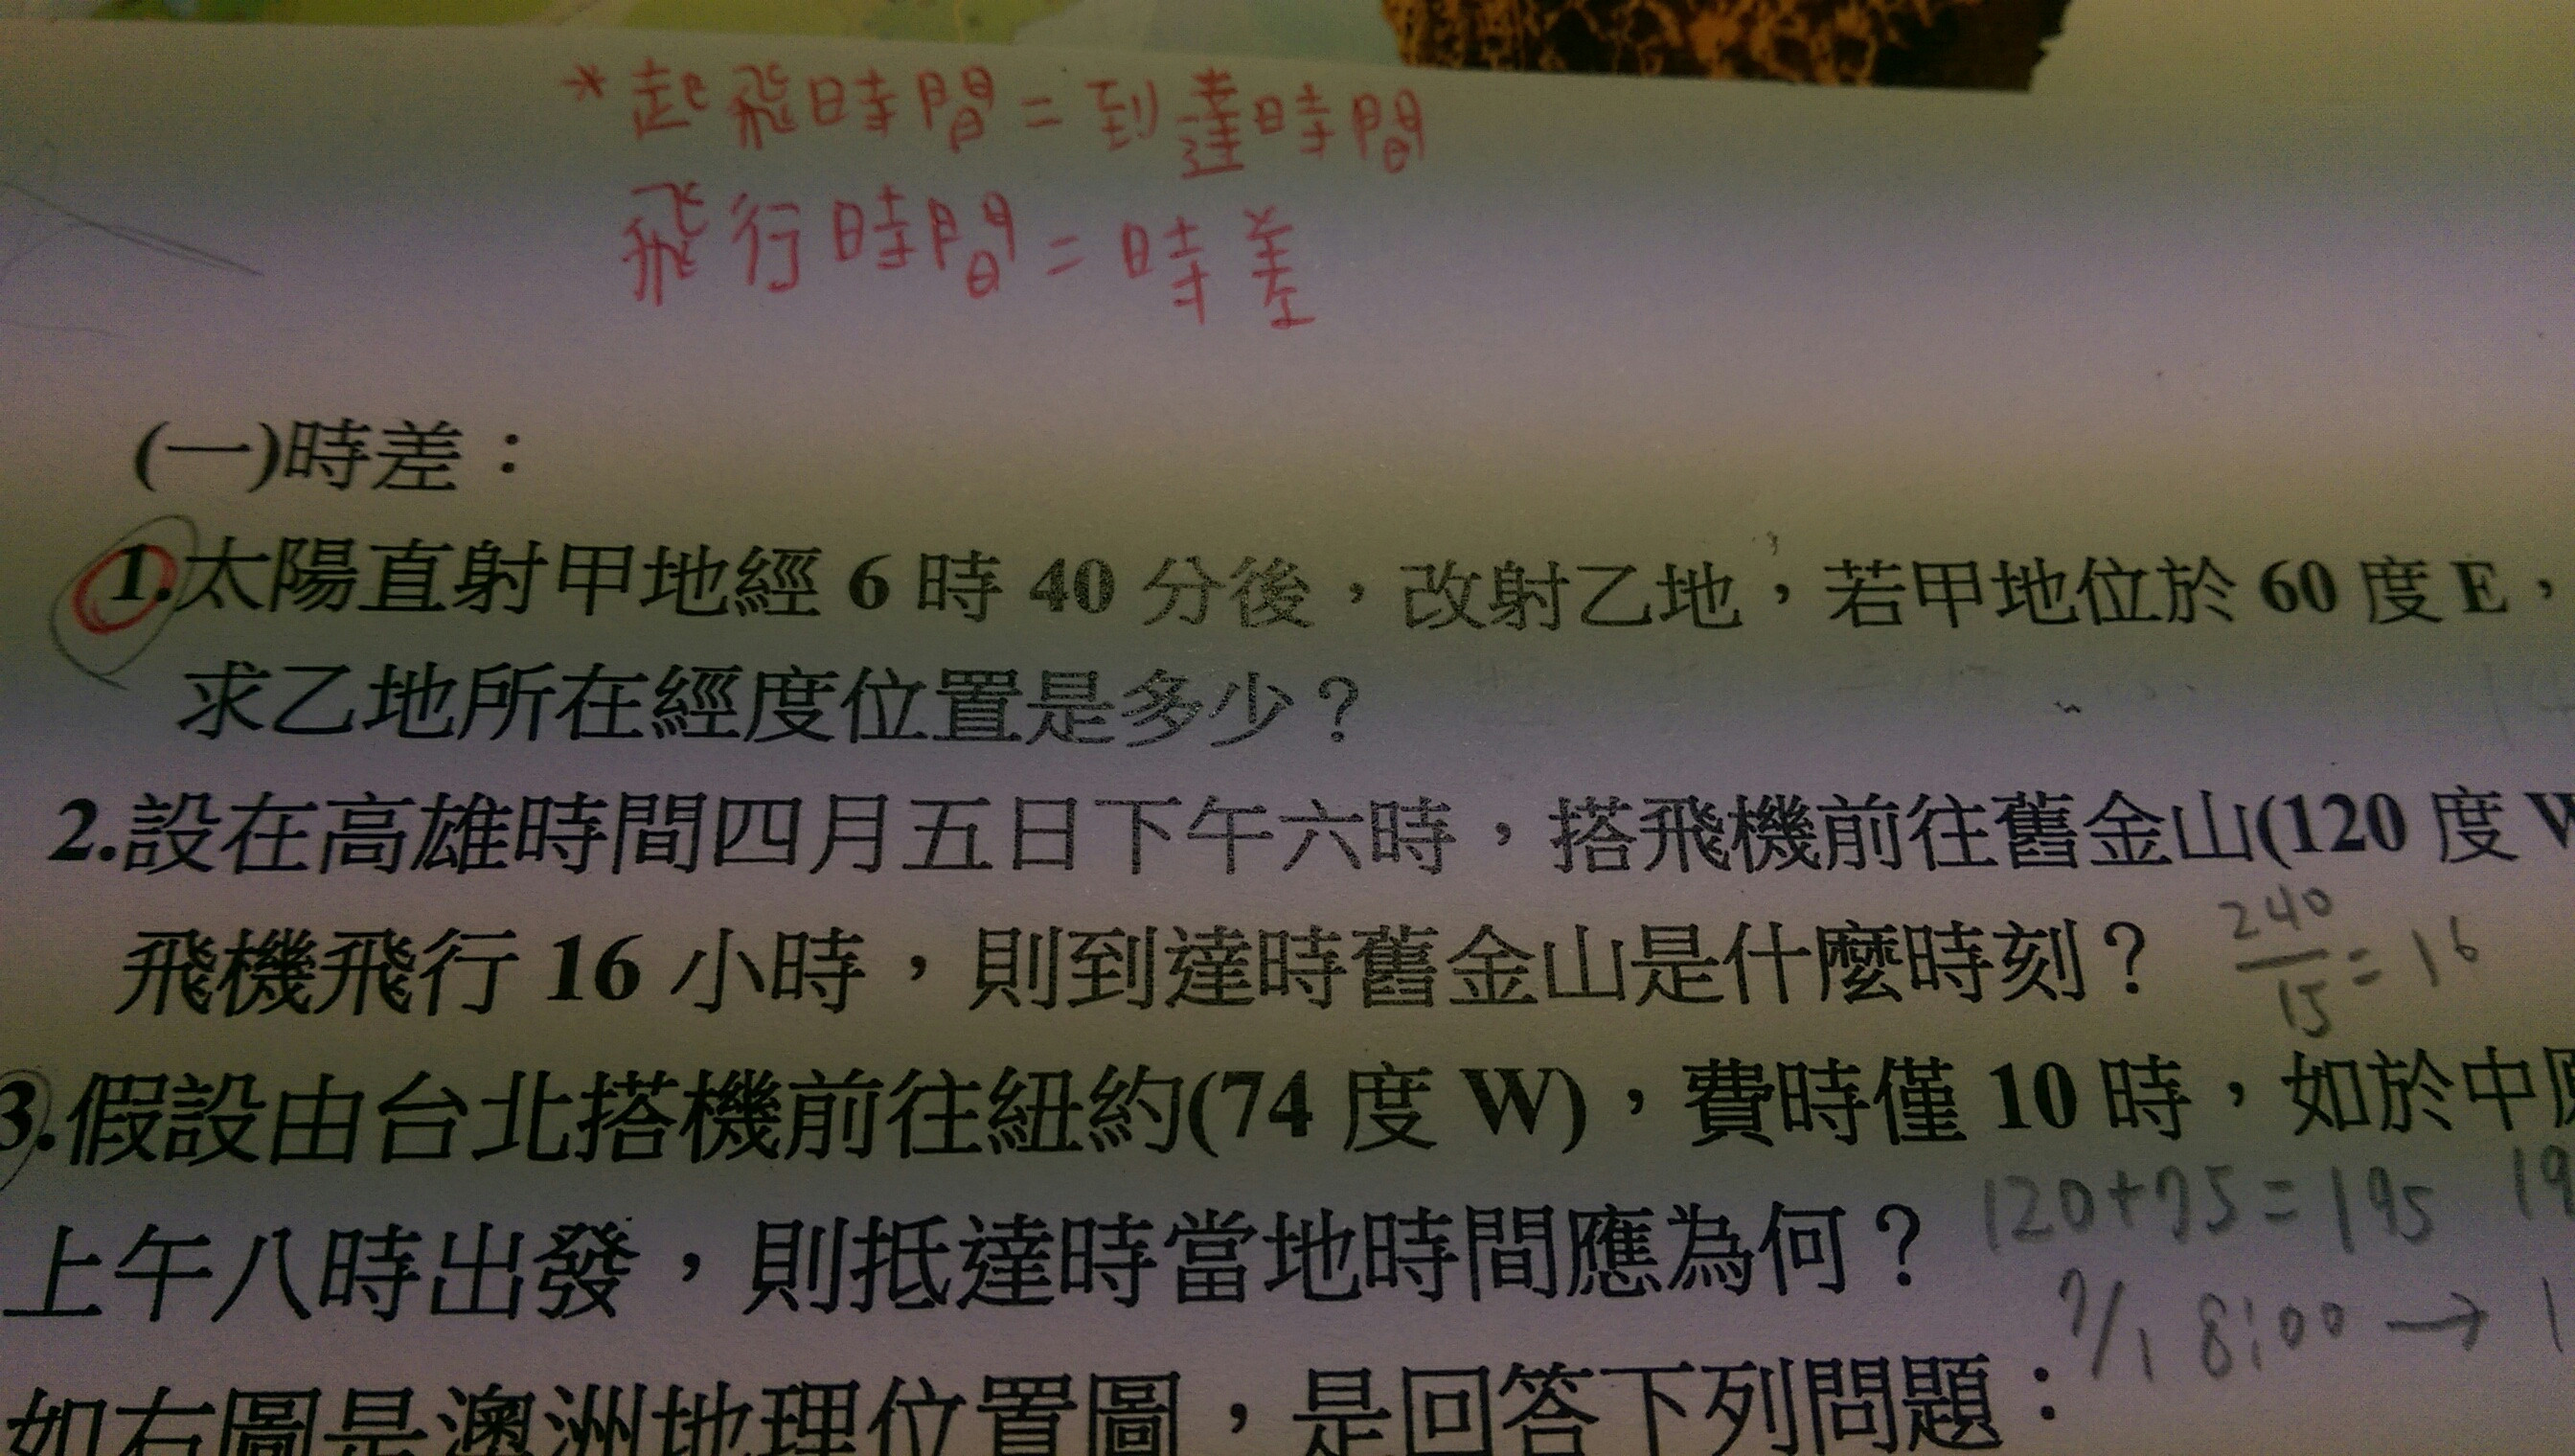 *起飛時間=到達時間
飛行時間=時差
(一)時差：
1.太陽直射甲地經 6 時 40 分後，改射乙地，若甲地位於 60 度 E，
求乙地所在經度位置是多少？
2.設在高雄時間四月五日下午六時，搭飛機前往舊金山(120 度 W
飛機飛行 16 小時，則到達時舊金山是什麼時刻？
240/15=16
3.假設由台北搭機前往紐約(74 度 W)，費時僅 10 時，如於中
上午八時出發，則抵達時當地時間應為何？
120+75=195 19
7/1 8:00→1
如右圖是澳洲地理位置圖，是回答下列問題：